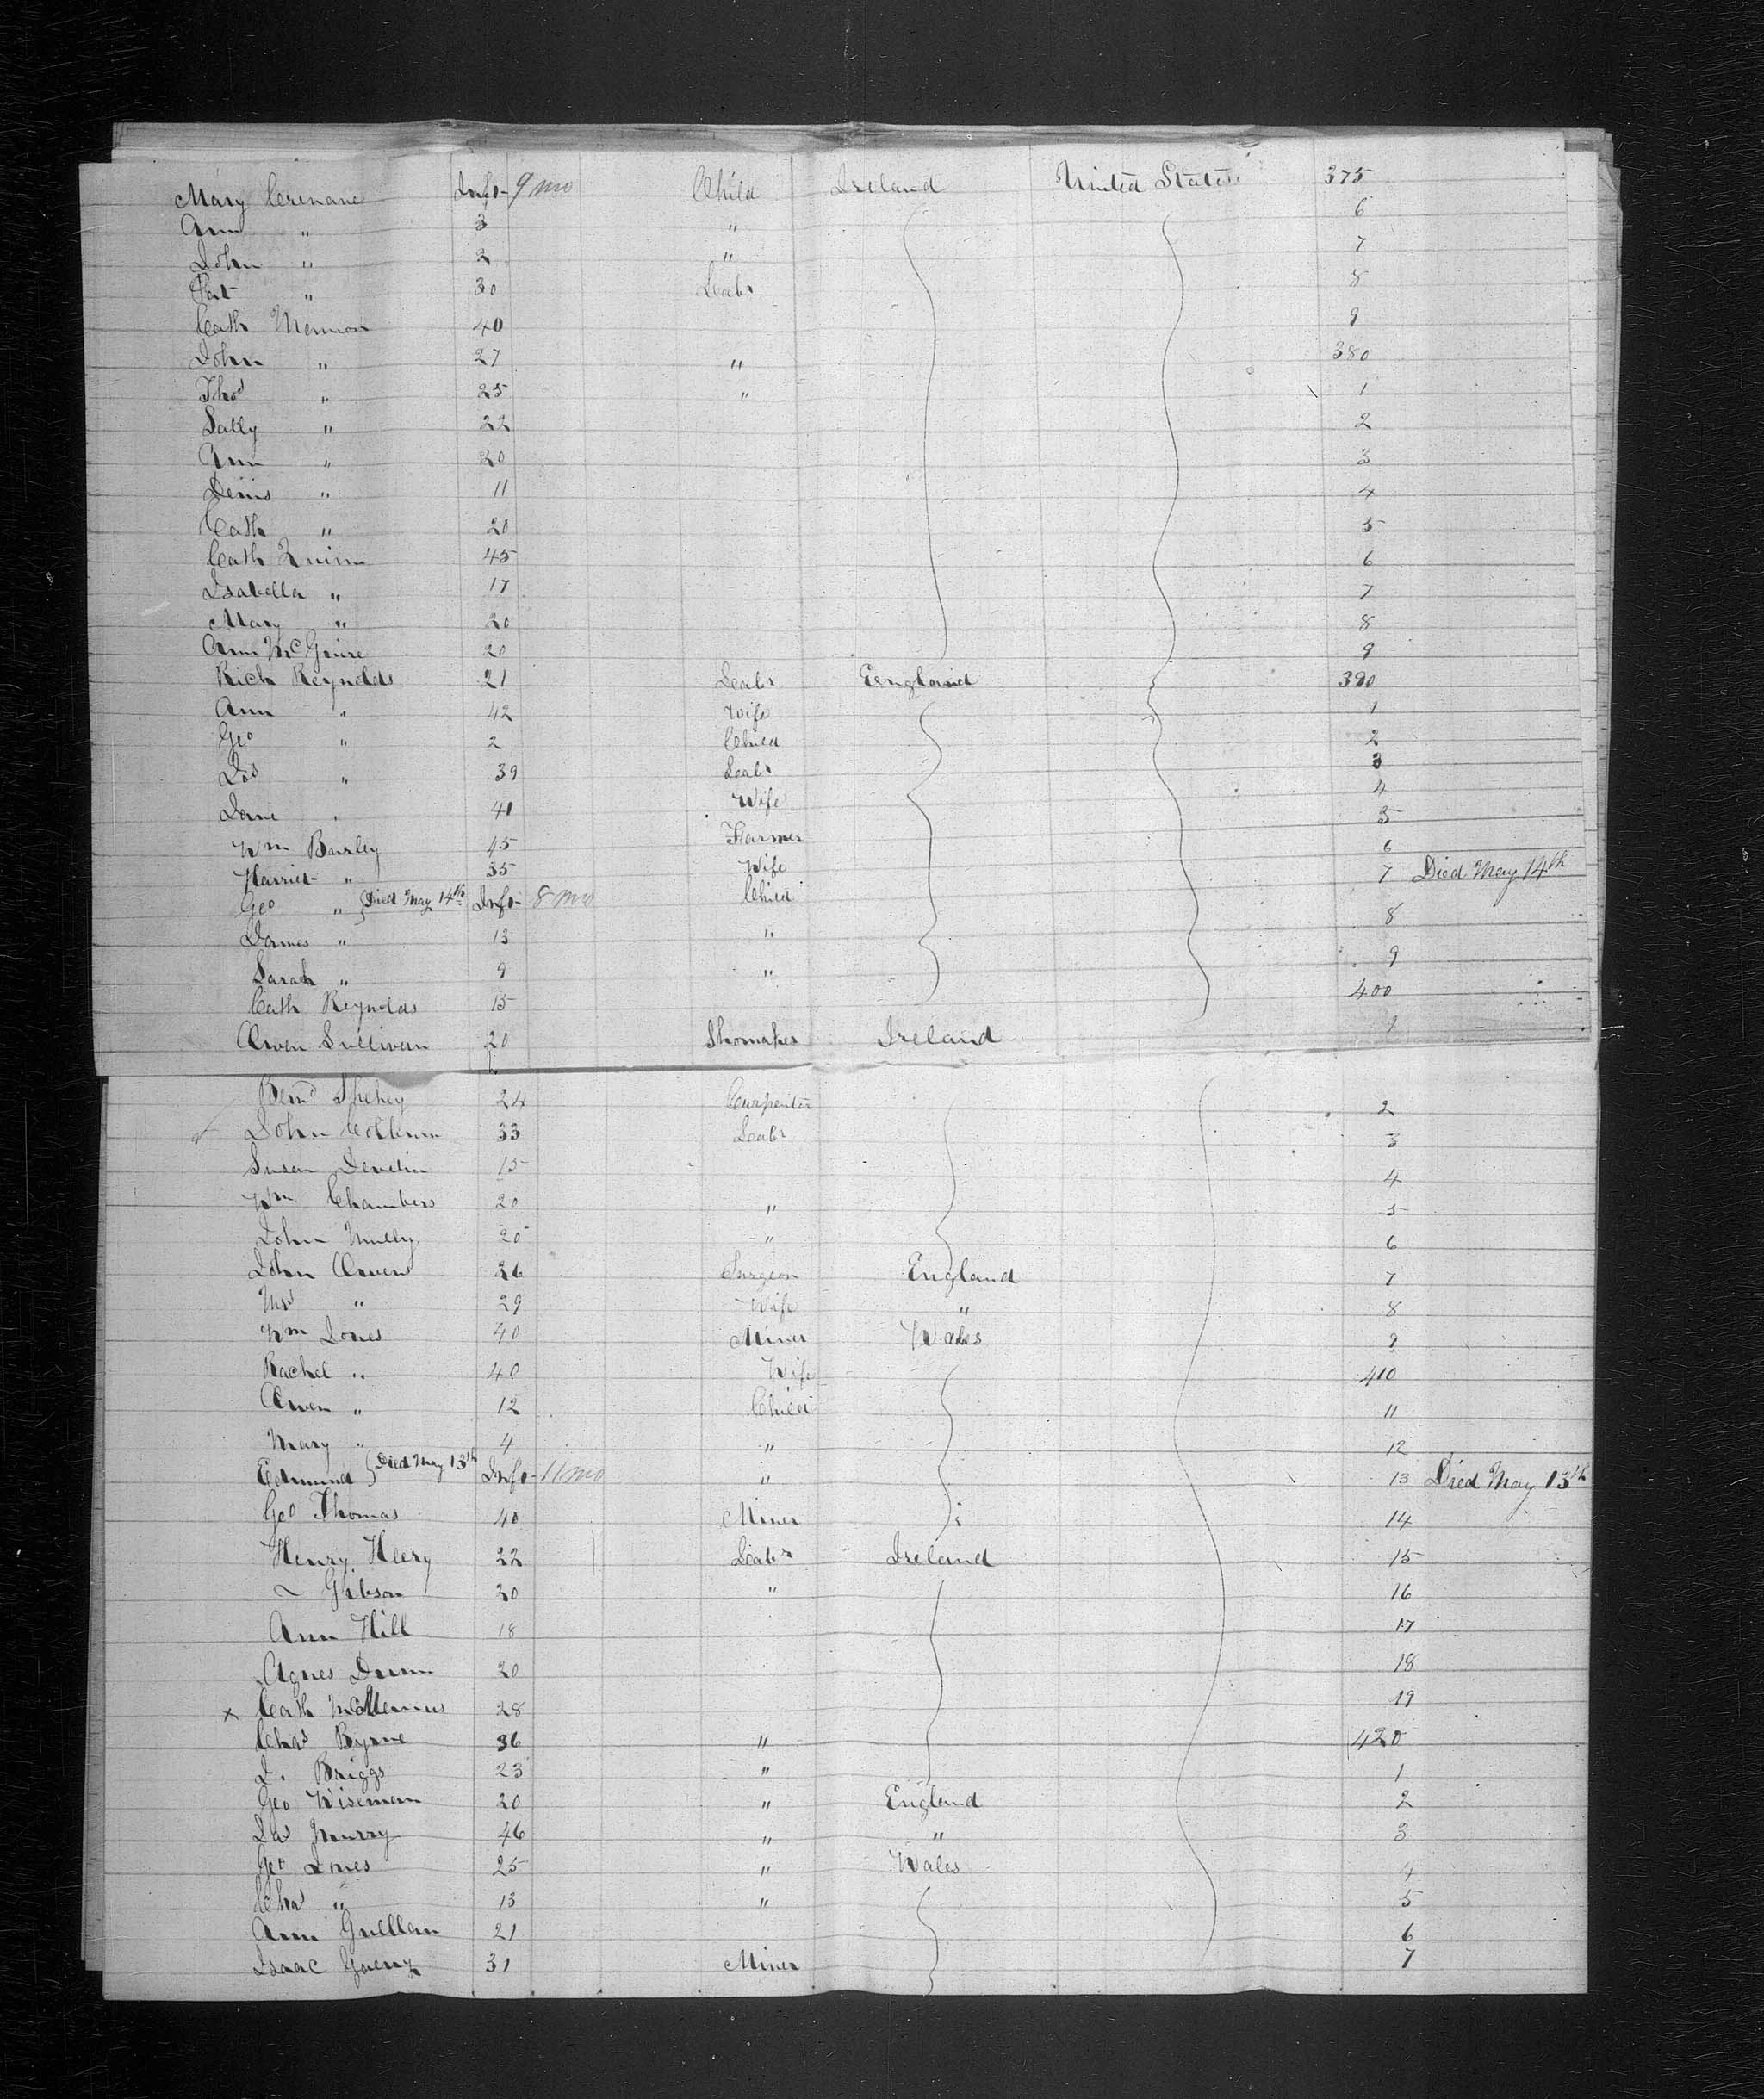 Mary Crenane Inft 9 mo Child Ireland United States 375
Ann " 3 " 6
John " 2 " 7
Pat " 30 Labr 8
Cath 40 9
John " 27 " 380
Thos " 25 " 1
Sally " 22 2
Ann " 20 3
Denis " 11 4
Cath " 20 5
Cath Quinn 45 6
Isabella " 17 7
Mary " 20 8
Ann McGuire 20 9
Rich Reynolds 21 Labr England 390
Ann " 42 Wife 1
Geo " 2 Child 2
Jas " 39 Labr 3
Jane " 41 Wife 4
5
Wm Burley 45 Farmer 6
Harriet " 35 Wife 7 Died May 14th
Geo " Died May 14th Inft 8 mo Child
James " 13 " 8
Sarah " 9 " 9
Cath Reynolds 15 400
Owen Sullivan 20 Shomaker Ireland 1
Bernd 24 Carpenter 2
John 33 Labr 3
Susan Develin 15 4
Wm Chambers 20 " 5
John Mully 20 " 6
John Owens 36 Surgeon England 7
Mrs " 29 Wife " 8
Wm Jones 40 Miner Wales 9
Rachel " 40 Wife 410
Owen " 12 Child 11
Mary " 4 " 12
Edmund Died May 13th Inft 11 mo " 13 Died May 13th
Geo Thomas 40 Miner 14
Henry Heery 22 Labr Ireland 15
~ Gibson 30 " 16
Ann Hill 18 17
Agnes Dunn 20 18
x Cath McManus 28 19
Chas Byrne 36 " 420
J. Briggs 23 " 1
Geo Wiseman 20 " England 2
Jas Murry 46 " " 3
Geo Jones 25 " Wales 4
Chas " 13 " 5
Ann 21 6
Isaac 31 Miner 7